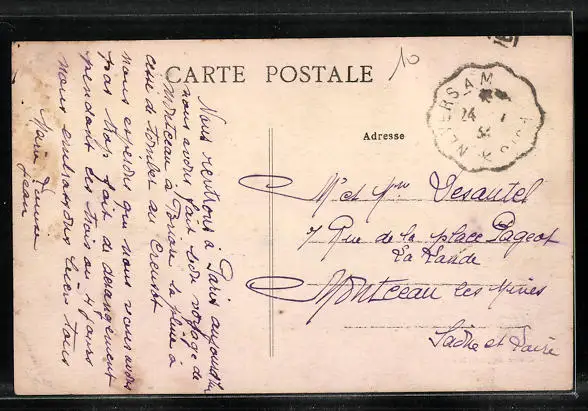 CARTE POSTALE
10
NEVERS A M
24
34
Adresse
Mr et Mme Desautel
7 Rue de la place Pageot
La Lande
Montceau les Mines
Saône et Loire
Nous rentrons à Paris aujourd'hui
nous avons fait bon voyage de
Montceau à la pluie à
de tomber au Creusot
nous espérons que nous vous avons
pas trop fait de dérangement
pendant les trois ou 4 jours
nous embrassons bien tous
Marie
Jean